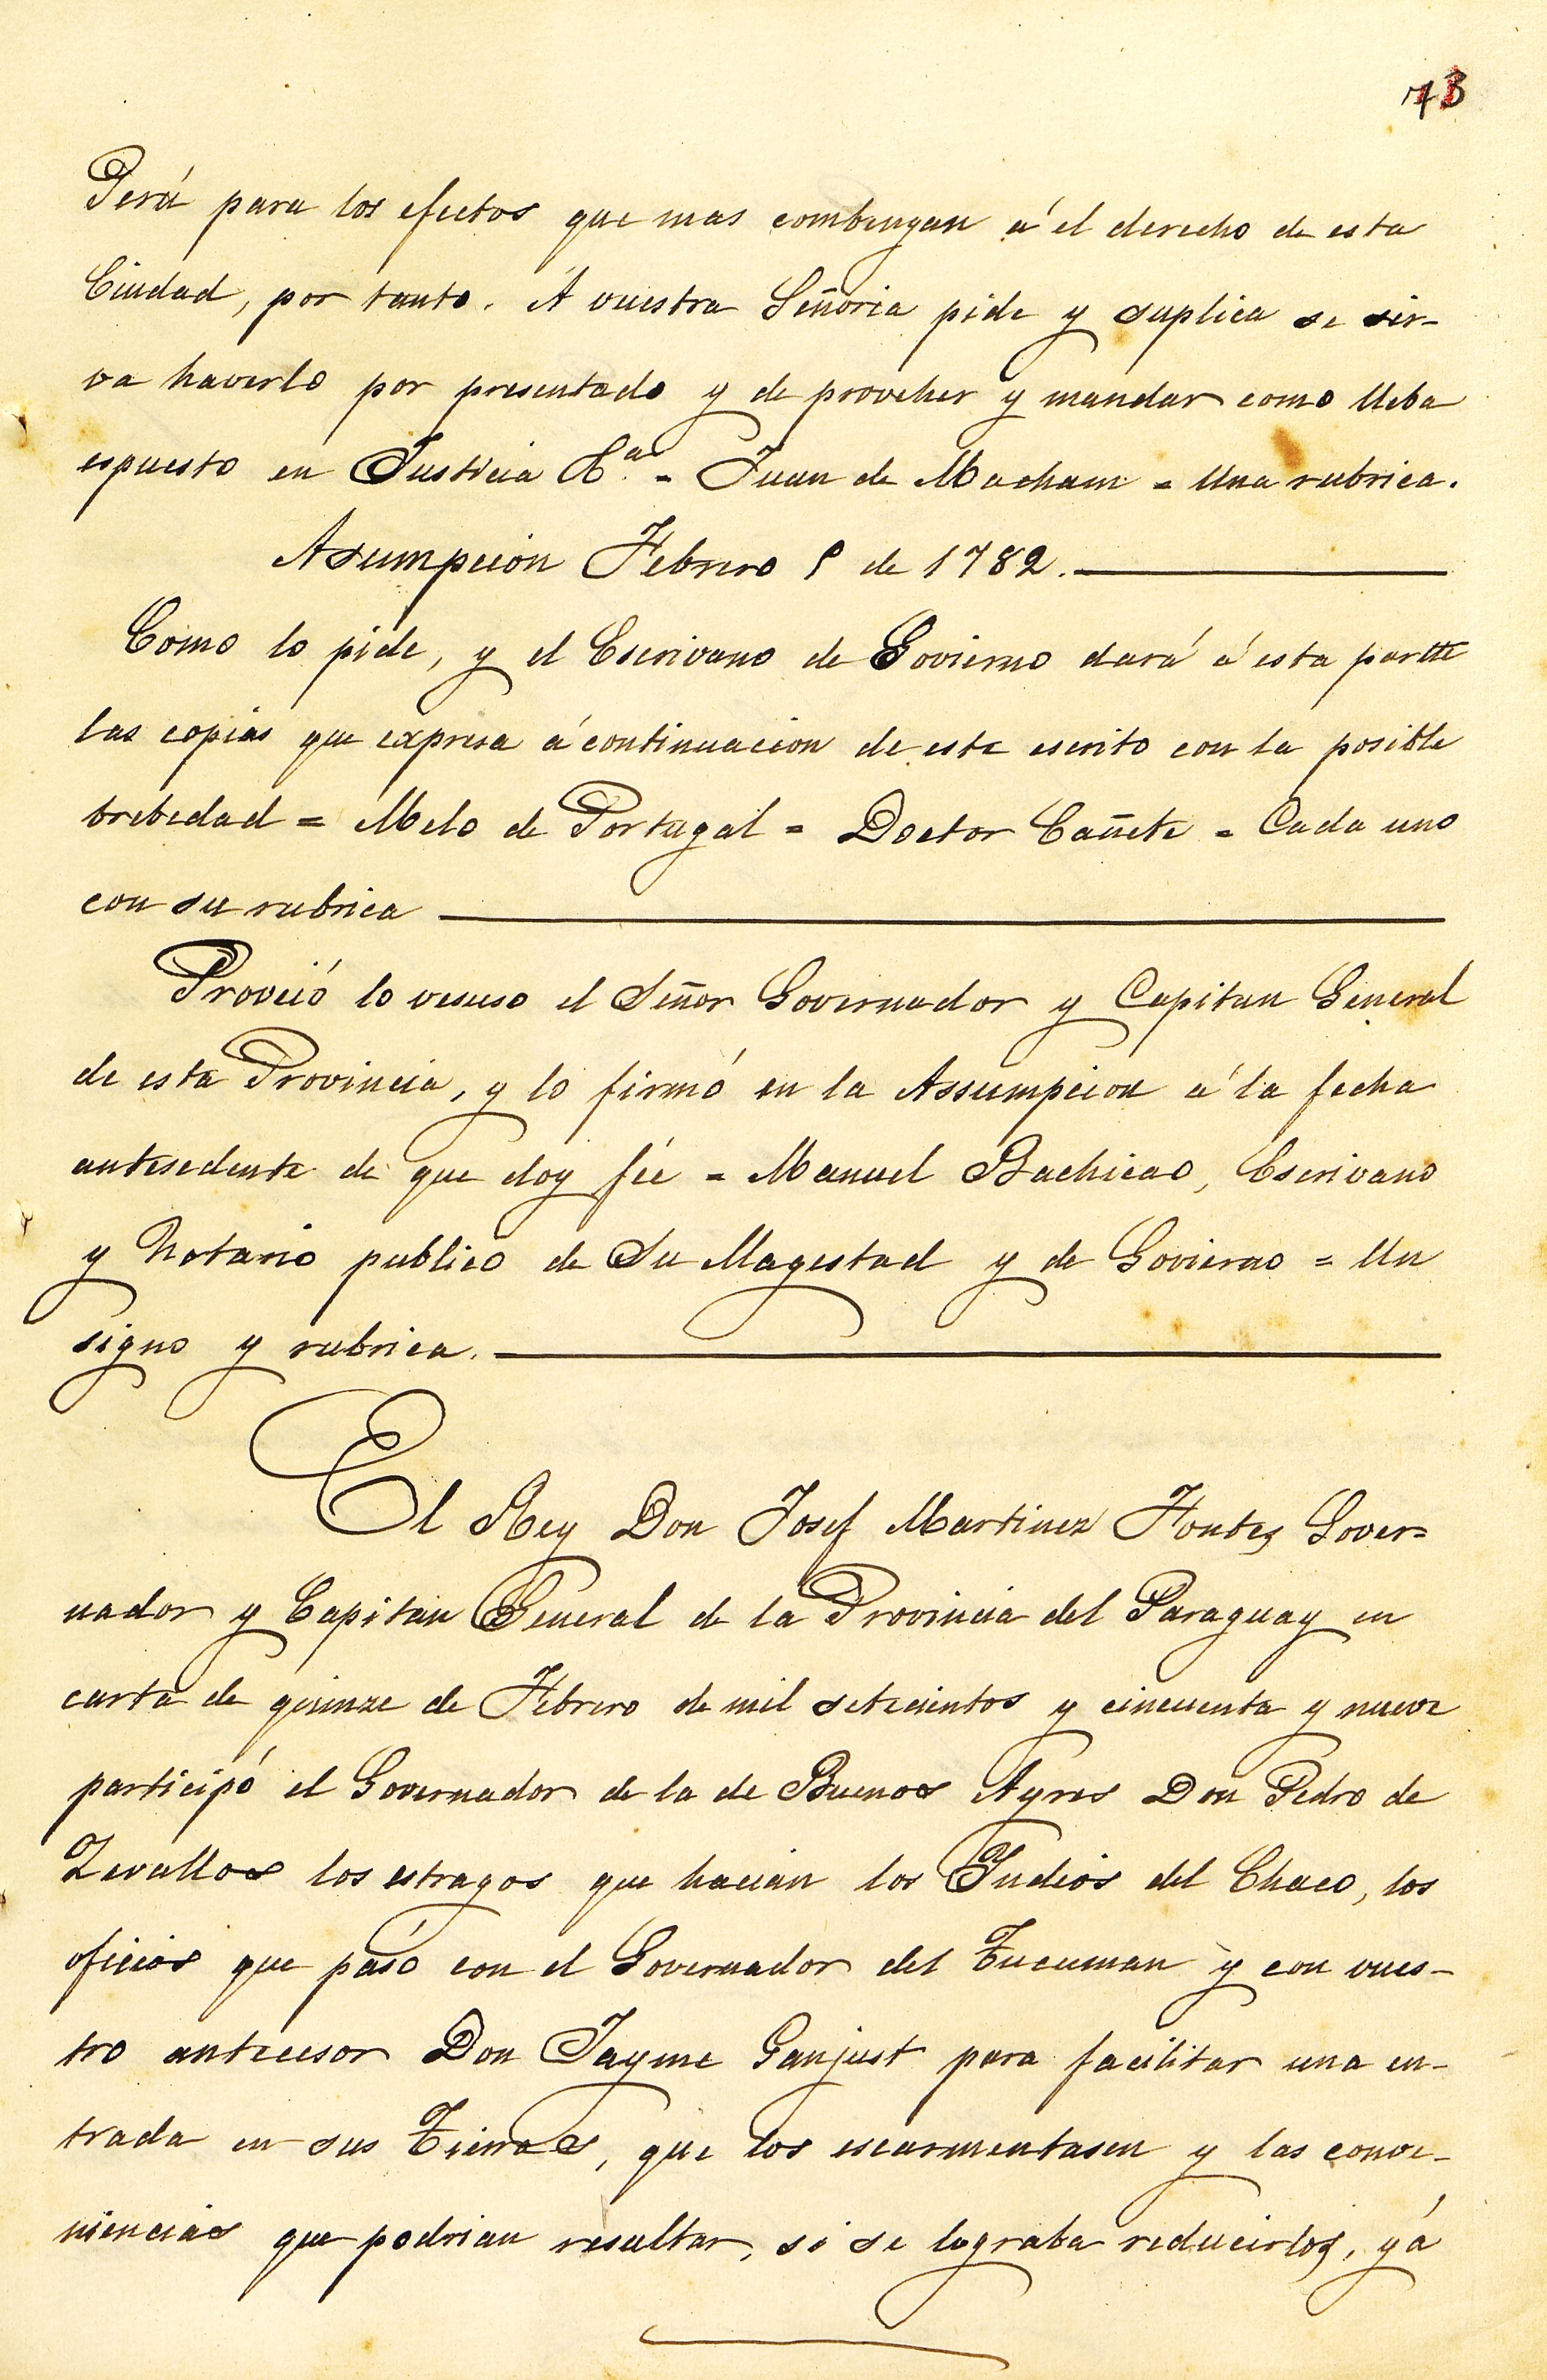 73
Perú para los efectos que mas combengan á el derecho de esta
Ciudad, por tanto. A vuestra Señoria pide y suplica se sir-
va haverlo por presentado y de proveher y mandar como lleba
espuesto en Justicia &ª. = Juan de Macham = Una rubrica.
Asumpcion Febrero 9 de 1782.
Como lo pide, y el Escrivano de Govierno dará á esta partte
las copias que expresa á continuacion de este escrito con la posible
brebedad = Melo de Portugal = Doctor Cañete = Cada uno
con su rubrica
Proveió lo vesuso el Señor Governador y Capitan General
de esta Provincia, y lo firmó en la Assumpcion á la fecha
antesedente de que doy fée = Manuel Bachicao, Escrivano
y Notario publico de Su Magestad y de Govierno = Un
signo y rubrica.
El Rey Don Josef Martinez Fontes Gover=
nador y Capitan General de la Provincia del Paraguay en
carta de quinze de Febrero de mil setecientos y cincuenta y nueve
participó el Governador de la de Buenos Ayres Don Pedro de
Zevallos los estragos que hacian los Indios del Chaco, los
oficios que pasó con el Governador del Tucuman y con vues-
tro antecesor Don Jayme Sanjust para facilitar una en-
trada en sus Tierras, que los escarmentasen y las conve-
niencias que podrian resultar, si se lograba reducirlos, y á